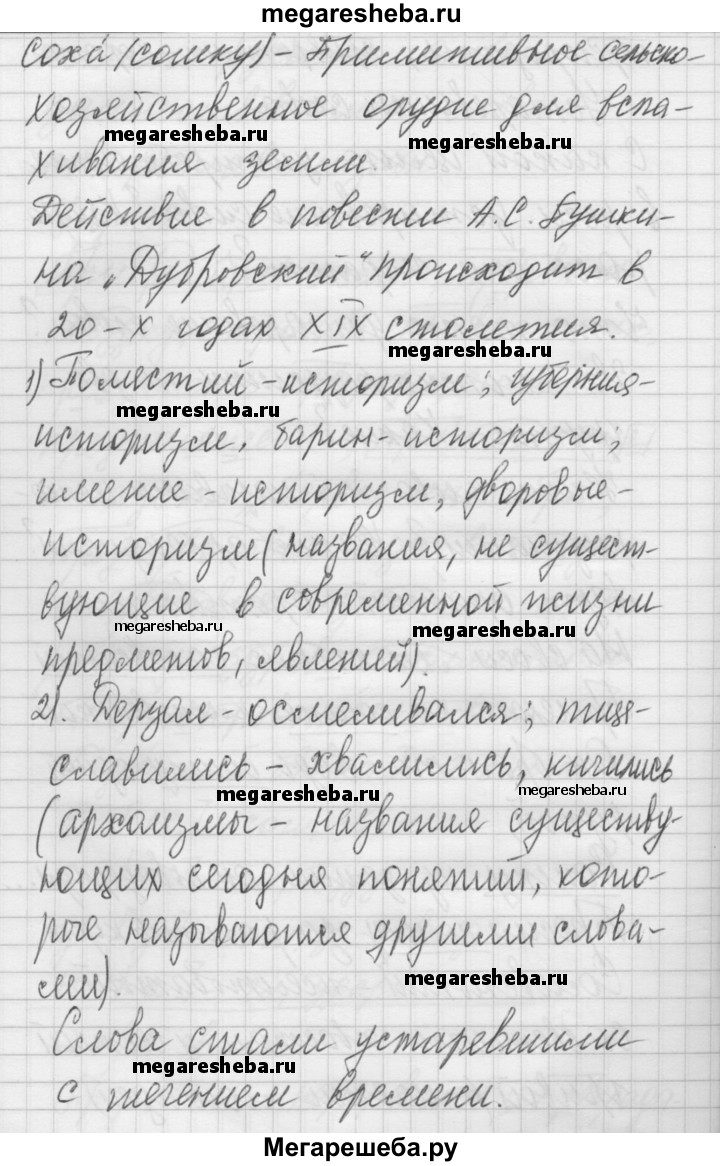 megaresheba.ru
Соха́ (сошку) – Примитивное сельско-
хозяйственное орудие для вспа-
megaresheba.ru
megaresheba.ru
хивания земли.
Действие в повести А.С. Пушки-
на „Дубровский“ происходит в
20-х годах XIX столетия.
megaresheba.ru
1) Поместий – историзм; губерния-
megaresheba.ru
историзм, барин- историзм;
имение – историзм, дворовые-
историзм (названия, не сущест-
вующие в современной жизни
megaresheba.ru
megaresheba.ru
предметов, явлений).
2). Дерзал – осмеливался; тще-
славились – хвалились, кичились
megaresheba.ru
megaresheba.ru
(архаизмы – названия существу-
ющих сегодня понятий, кото-
рые называются другими слова-
ми).
megaresheba.ru
Слова стали устаревшими
megaresheba.ru
с течением времени.
Мегарешеба.ру